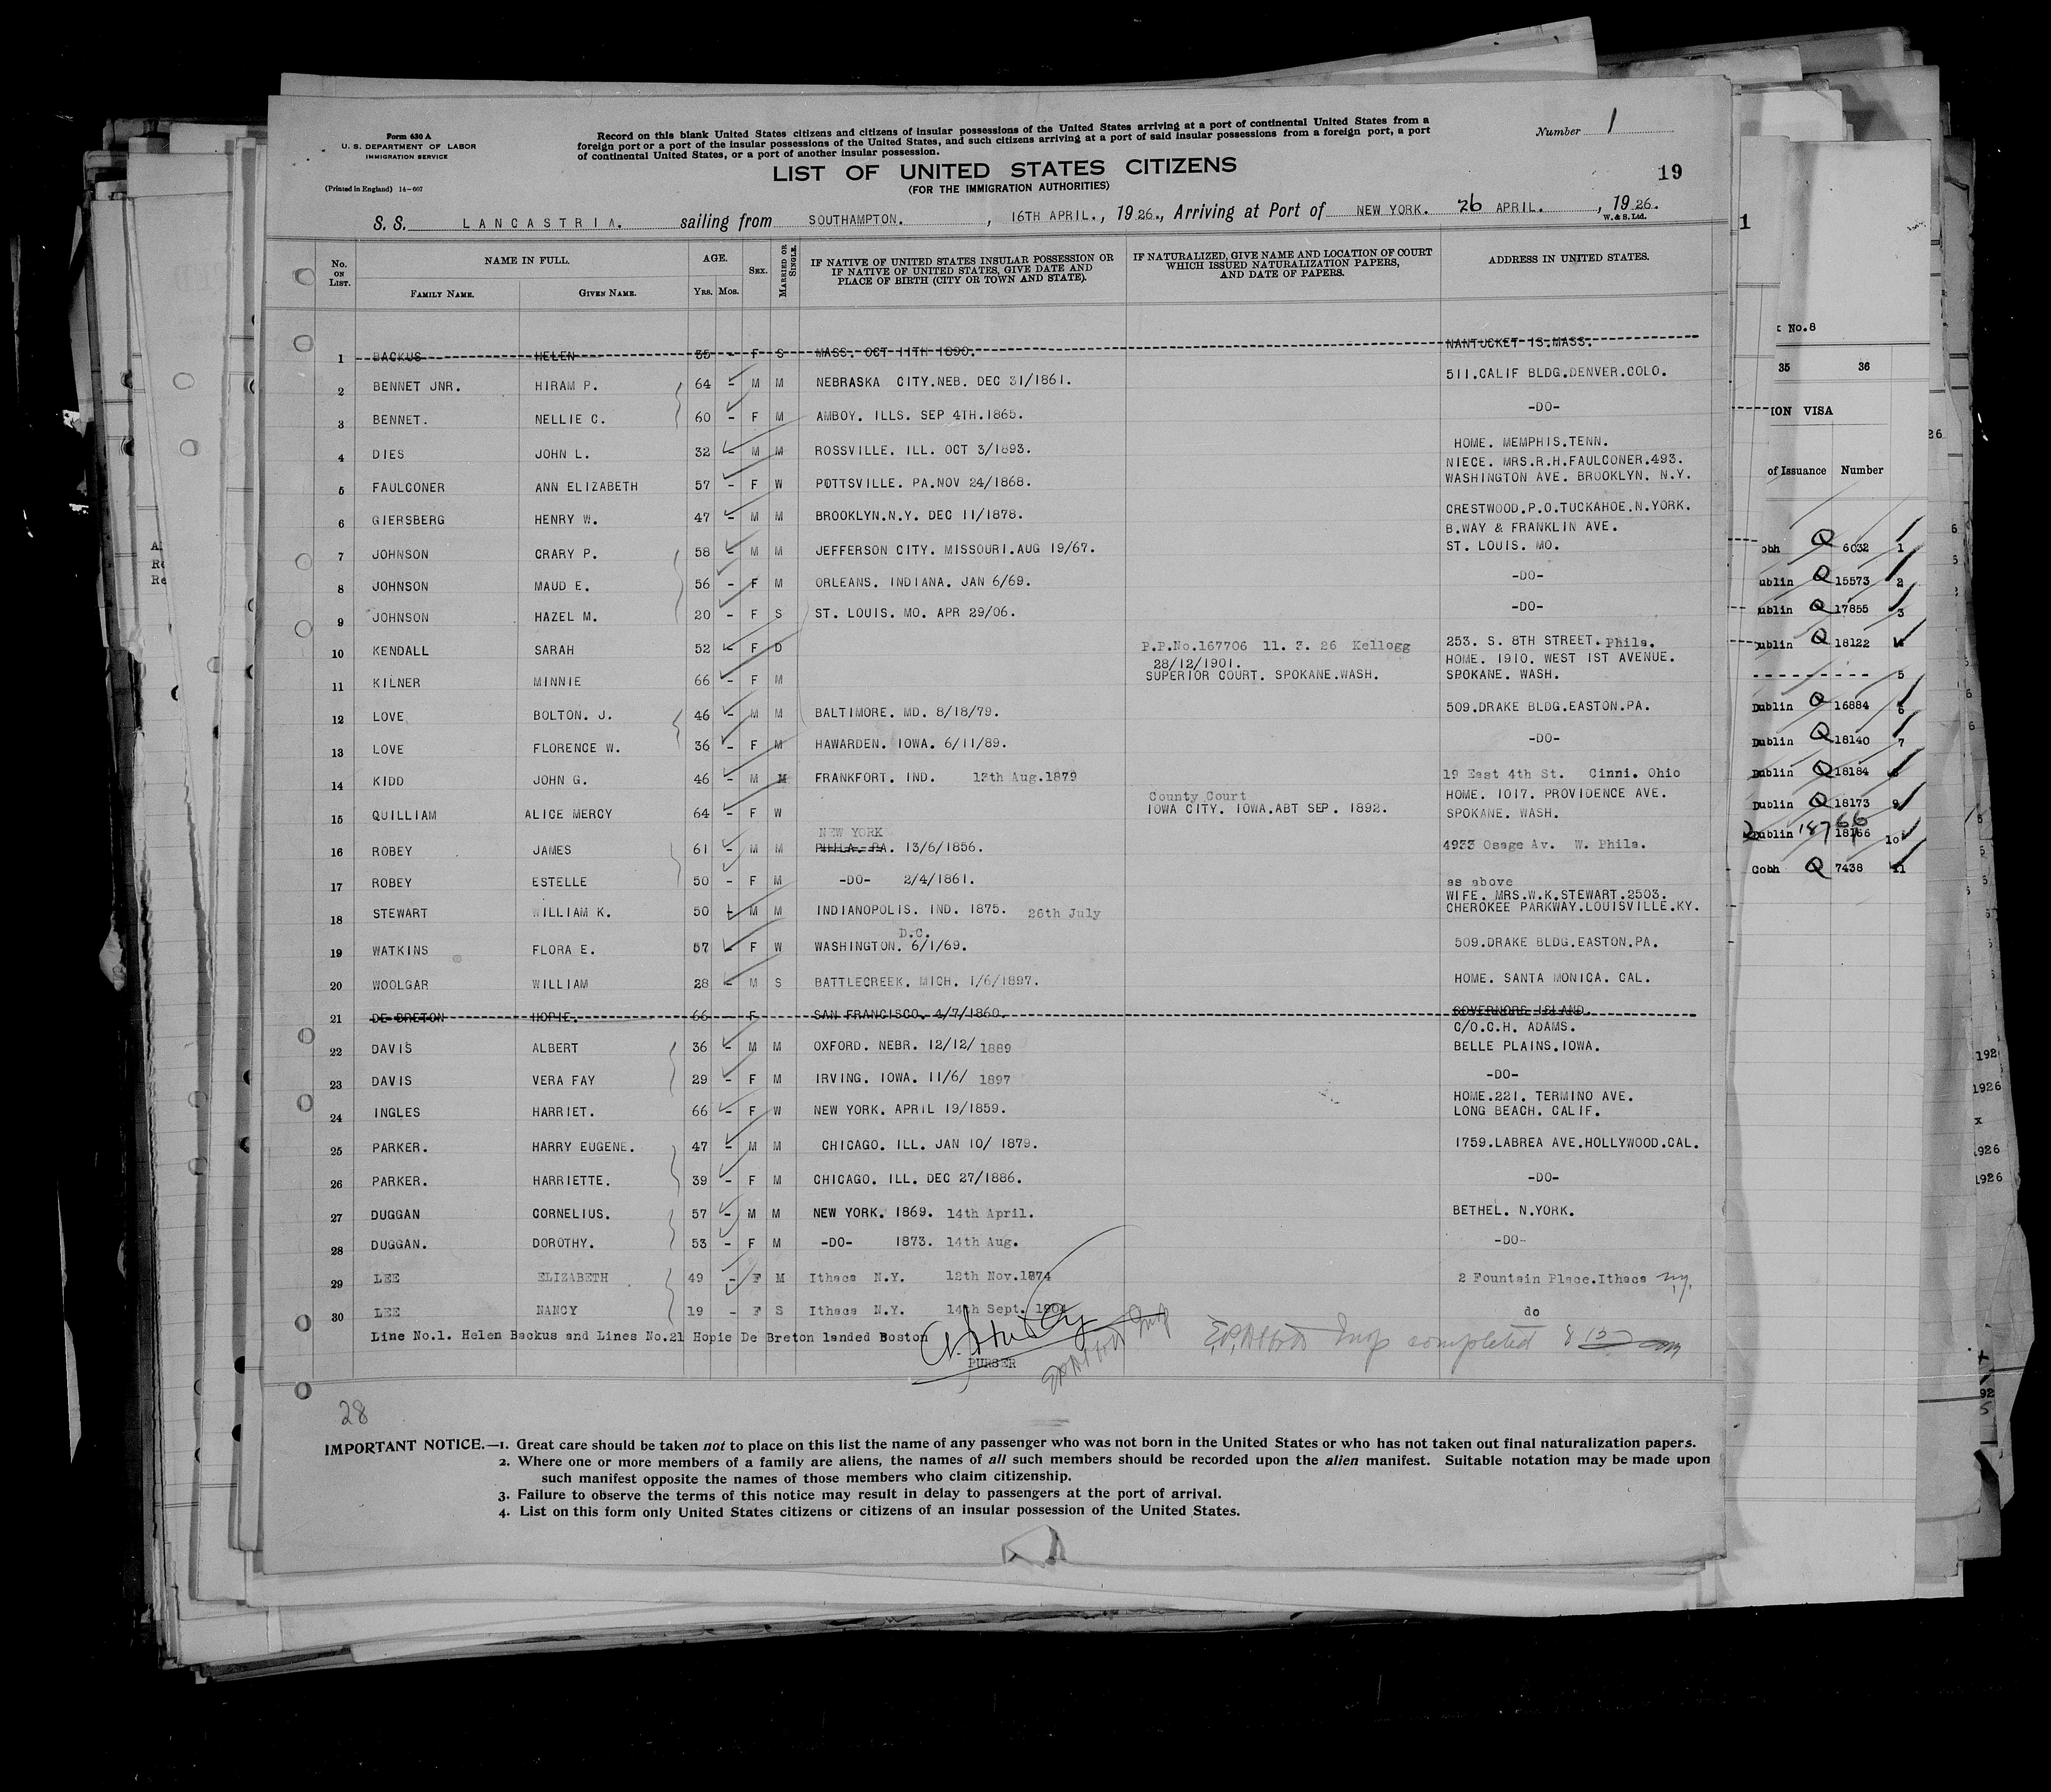 Form 630 A
U. S. DEPARTMENT OF LABOR
IMMIGRATION SERVICE
(Printed in England) 14-607
Record on this blank United States citizens and citizens of insular possessions of the United States arriving at a port of continental United States from a
foreign port or a port of the insular possessions of the United States, and such citizens arriving at a port of said insular possessions from a foreign port, a port
of continental United States, or a port of another insular possession.
Number 1
LIST OF UNITED STATES CITIZENS
(FOR THE IMMIGRATION AUTHORITIES)
19
S. S. LANCASTRIA. sailing from SOUTHAMPTON. , 16TH APRIL., 1926., Arriving at Port of NEW YORK. 26 APRIL. , 1926.
W. & S. Ltd.
No. ON LIST. NAME IN FULL. AGE. SEX. MARRIED OR SINGLE. IF NATIVE OF UNITED STATES INSULAR POSSESSION OR IF NATIVE OF UNITED STATES, GIVE DATE AND PLACE OF BIRTH (CITY OR TOWN AND STATE). IF NATURALIZED, GIVE NAME AND LOCATION OF COURT WHICH ISSUED NATURALIZATION PAPERS, AND DATE OF PAPERS. ADDRESS IN UNITED STATES.
FAMILY NAME. GIVEN NAME. YRS. MOS.
1 BACKUS HELEN 35 - F S MASS. OCT 11TH 1890. NANTUCKET IS.MASS.
2 BENNET JNR. HIRAM P. 64 - M M NEBRASKA CITY.NEB. DEC 31/1861. 511.CALIF BLDG.DENVER.COLO.
3 BENNET. NELLIE C. 60 - F M AMBOY. ILLS. SEP 4TH.1865. -DO-
4 DIES JOHN L. 32 - M M ROSSVILLE. ILL. OCT 3/1893. HOME. MEMPHIS.TENN.
NIECE. MRS.R.H.FAULCONER.493.
5 FAULCONER ANN ELIZABETH 57 - F W POTTSVILLE. PA.NOV 24/1868. WASHINGTON AVE. BROOKLYN. N.Y.
6 GIERSBERG HENRY W. 47 - M M BROOKLYN.N.Y. DEC 11/1878. CRESTWOOD.P.O.TUCKAHOE.N.YORK.
B.WAY & FRANKLIN AVE.
7 JOHNSON CRARY P. 58 - M M JEFFERSON CITY. MISSOURI.AUG 19/67. ST. LOUIS. MO.
8 JOHNSON MAUD E. 56 - F M ORLEANS. INDIANA. JAN 6/69. -DO-
9 JOHNSON HAZEL M. 20 - F S ST. LOUIS. MO. APR 29/06. -DO-
10 KENDALL SARAH 52 - F D P.P.No.167706 11. 3. 26 Kellogg 253. S. 8TH STREET. Phila.
28/12/1901. HOME. 1910. WEST 1ST AVENUE.
11 KILNER MINNIE 66 - F M SUPERIOR COURT. SPOKANE.WASH. SPOKANE. WASH.
12 LOVE BOLTON. J. 46 - M M BALTIMORE. MD. 8/18/79. 509.DRAKE BLDG.EASTON.PA.
13 LOVE FLORENCE W. 36 - F M HAWARDEN. IOWA. 6/11/89. -DO-
14 KIDD JOHN G. 46 - M M FRANKFORT. IND. 13th Aug.1879 19 East 4th St. Cinni. Ohio
County Court HOME. 1017. PROVIDENCE AVE.
15 QUILLIAM ALICE MERCY 64 - F W IOWA CITY. IOWA.ABT SEP. 1892. SPOKANE. WASH.
NEW YORK
16 ROBEY JAMES 61 - M M PHILA. PA. 13/6/1856. 4933 Osage Av. W. Phila.
17 ROBEY ESTELLE 50 - F M -DO- 2/4/1861. as above
WIFE. MRS.W.K.STEWART.2503.
18 STEWART WILLIAM K. 50 - M M INDIANOPOLIS. IND. 1875. 26th July CHEROKEE PARKWAY.LOUISVILLE.KY.
D.C.
19 WATKINS FLORA E. 57 - F W WASHINGTON. 6/1/69. 509.DRAKE BLDG.EASTON.PA.
20 WOOLGAR WILLIAM 28 - M S BATTLECREEK. MICH. 1/6/1897. HOME. SANTA MONICA. CAL.
21 DE BRETON HOPIE. 66 - F SAN FRANCISCO. 4/7/1860. GOVERNORS ISLAND.
C/O.C.H. ADAMS.
22 DAVIS ALBERT 36 - M M OXFORD. NEBR. 12/12/ 1889 BELLE PLAINS.IOWA.
23 DAVIS VERA FAY 29 - F M IRVING. IOWA. 11/6/ 1897 -DO-
HOME.221. TERMINO AVE.
24 INGLES HARRIET. 66 - F W NEW YORK. APRIL 19/1859. LONG BEACH. CALIF.
25 PARKER. HARRY EUGENE. 47 - M M CHICAGO. ILL. JAN 10/ 1879. 1759.LABREA AVE.HOLLYWOOD.CAL.
26 PARKER. HARRIETTE. 39 - F M CHICAGO. ILL. DEC 27/1886. -DO-
27 DUGGAN CORNELIUS. 57 - M M NEW YORK. 1869. 14th April. BETHEL. N.YORK.
28 DUGGAN. DOROTHY. 53 - F M -DO- 1873. 14th Aug. -DO-
29 LEE ELIZABETH 49 - F M Ithaca N.Y. 12th Nov.1874 2 Fountain Place.Ithaca N.Y.
30 LEE NANCY 19 - F S Ithaca N.Y. 14th Sept. do
Line No.1. Helen Backus and Lines No.21 Hopie De Breton landed Boston
PURSER
Insp completed
28
IMPORTANT NOTICE.—1. Great care should be taken not to place on this list the name of any passenger who was not born in the United States or who has not taken out final naturalization papers.
2. Where one or more members of a family are aliens, the names of all such members should be recorded upon the alien manifest. Suitable notation may be made upon
such manifest opposite the names of those members who claim citizenship.
3. Failure to observe the terms of this notice may result in delay to passengers at the port of arrival.
4. List on this form only United States citizens or citizens of an insular possession of the United States.
1
No.8
35 36
ION VISA
of Issuance Number
obh Q 6032 1
ublin Q 15573 2
ublin Q 17855 3
ublin Q 18122 4
- - - - - - - - - 5
Dublin Q 16884 6
Dublin Q 18140 7
Dublin Q 18184 8
Dublin Q 18173 9
Dublin 18766 18166 10
Cobh Q 7438 11
26
192
1926
x
1926
1926
92